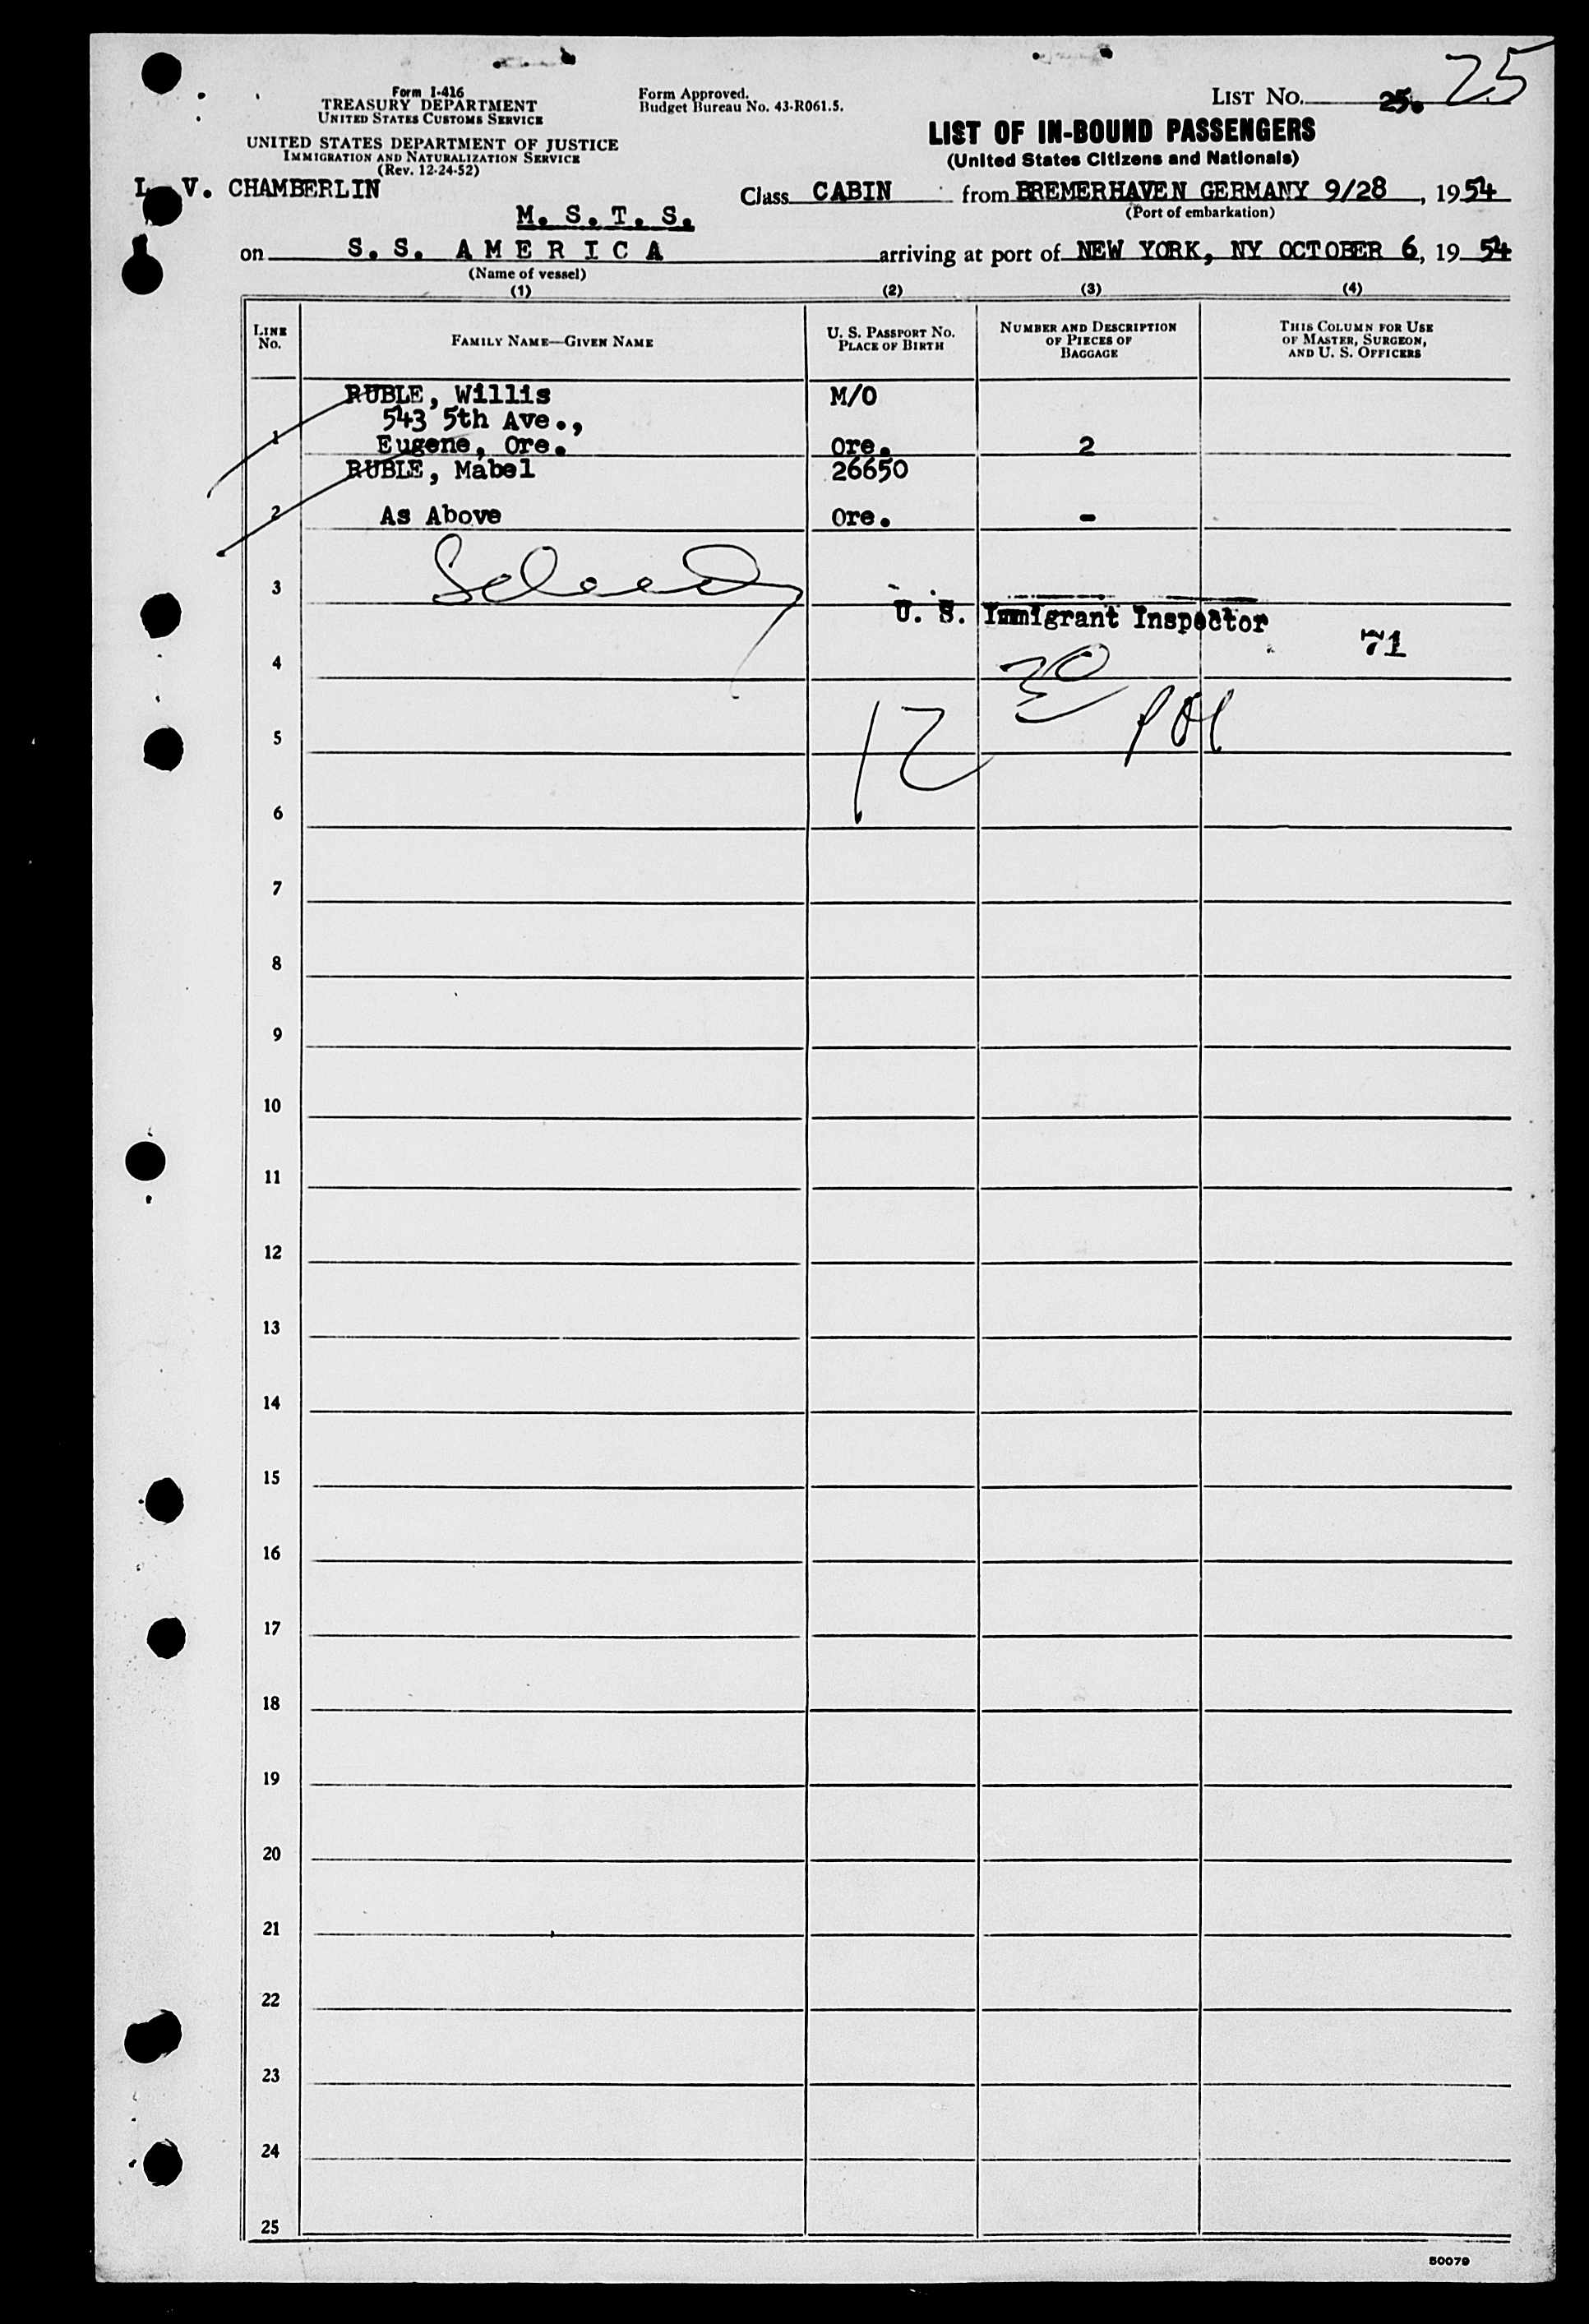 25
Form I-416
TREASURY DEPARTMENT
UNITED STATES CUSTOMS SERVICE
Form Approved.
Budget Bureau No. 43-R061.5.
LIST NO. 25.
UNITED STATES DEPARTMENT OF JUSTICE
IMMIGRATION AND NATURALIZATION SERVICE
(Rev. 12-24-52)
LIST OF IN-BOUND PASSENGERS
(United States Citizens and Nationals)
V. CHAMBERLIN
Class CABIN from BREMERHAVEN GERMANY 9/28, 1954
(Port of embarkation)
M. S. T. S.
on S. S. A M E R I C A arriving at port of NEW YORK, NY OCTOBER 6, 19 54
(Name of vessel)
(1) (2) (3) (4)
LINE No. FAMILY NAME—GIVEN NAME U. S. PASSPORT NO. PLACE OF BIRTH NUMBER AND DESCRIPTION OF PIECES OF BAGGAGE THIS COLUMN FOR USE OF MASTER, SURGEON, AND U. S. OFFICERS
RUBLE, Willis M/O
543 5th Ave.,
1 Eugene, Ore. Ore. 2
RUBLE, Mabel 26650
2 As Above Ore. -
3
U. S. Immigrant Inspector
71
4
12 30 PM
5
6
7
8
9
10
11
12
13
14
15
16
17
18
19
20
21
22
23
24
25
50079